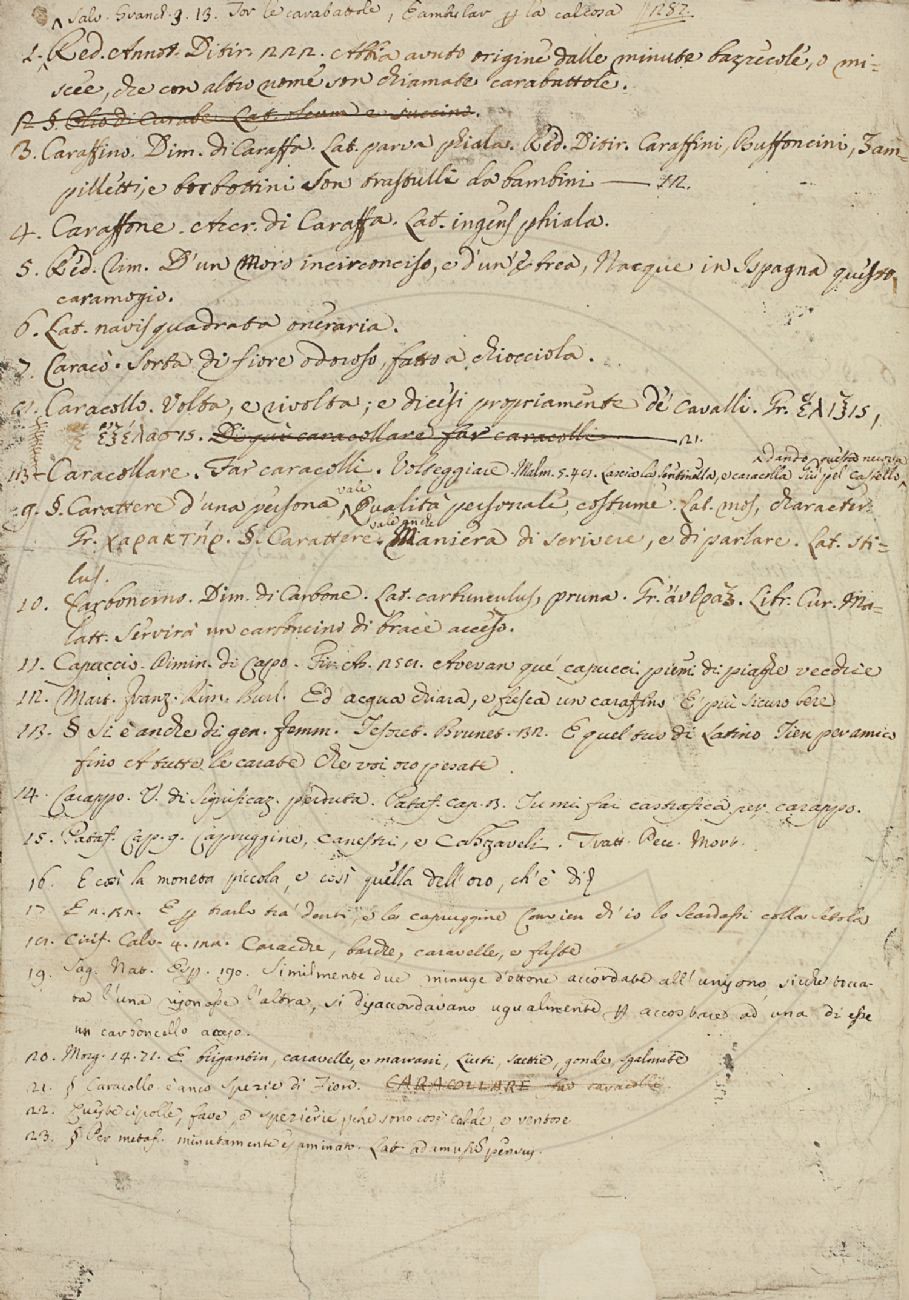 Salv. Granch. 3. 13. Tor le carabattole, e ambular p la calcosa 1282.
1. Red. Annot. Ditir. 222. Abbia avuto origine dalle minute bazzecole, o mi=
scee, che con altro nome son chiamate carabattole.
12 §. Olio di Carabe Lat. oleum e succino.
3. Caraffino. Dim. di Caraffa. Lat. parva phiala. Red. Ditir. Caraffini, Buffoncini, Zam=
pilletti, e borbottini Son trastulli da bambini —— 12.
4. Caraffone. Accr. di Caraffa. Lat. ingens phiala.
5. Red. Rim. D'un Moro incirconciso, e d'un' Ebrea, Nacque in Ispagna questo
caramogio.
6. Lat. navis quadrata oneraria.
7. Caracò. Sorta di fiore odoroso, fatto a chiocciola.
8. Caracollo. Volta, e rivolta; e dicesi propriamente de' Cavalli. Gr. ἕλιξις,
ἐξέλασις. Di qui caracollare far caracolli —— 21.
13 Caracollare. Far caracolli. Volteggiare Malm. 5. 48. Lascia la sentinella, e caracolla Giù pel Castello
dando questa nuova
9. §. Carattere d'una persona, vale Qualità personale, costume. Lat. mos, character
Gr. χαρακτήρ. §. Carattere. vale anche Maniera di scrivere, e di parlare. Lat. sti=
lus.
10. Carboncino. Dim. di Carbone. Lat. carbunculus, pruna. Gr. ἄνθραξ. Libr. Cur. Ma=
latt. Servirà un carboncino di brace acceso.
11. Capuccio. Dimin. di Capo. 258. Avevan que' capucci pieni di piaghe vecchie
12. Mart. Franz. Rim. Burl. Ed acqua chiara, e fresca un caraffino E' più sicuro bere
13. § Si è anche di gen. femm. Tesoret. Brunet. E quel tuo di Latino Tien per amico
fino A tutte le carate Che voi oro pesate.
14. Carappo. V. di significaz. perduta. Pataff. Cap. 3. Tu mi fai castrafica per carappo.
15. Pataff. Cap. 9. Capruggine, Canestri, e Cabzaveli. Tratt. Pecc. Mort.
16. E così la moneta piccola, e così quella dell'oro, ch'è di
17 E p trarlo tra' denti, e la capruggine Convien ch'io lo Scardassi colla Setola
18. Ciriff. Calv. 4. Caracche, barche, caravelle, e fuste
19. Sag. Nat. Esp. 190. Similmente due minuge d'ottone accordate all'unisono, sicche tocca=
ta l'una risonasse l'altra, si disaccordavano ugualmente # accostato ad una di esse
un carboncello acceso.
20. Morg. 14. 71. E brigantin, caravelle, e marrani, Liuti, saettie, gonde, spalmate
21. § Caracollo è anco Spezie di Fior. CARACOLLARE far caracolli
22. cipolle, fave, e spezierie, che sono così calde, e ventose
23. § Per metaf. minutamente esaminato. Lat. ad amussim pensus.